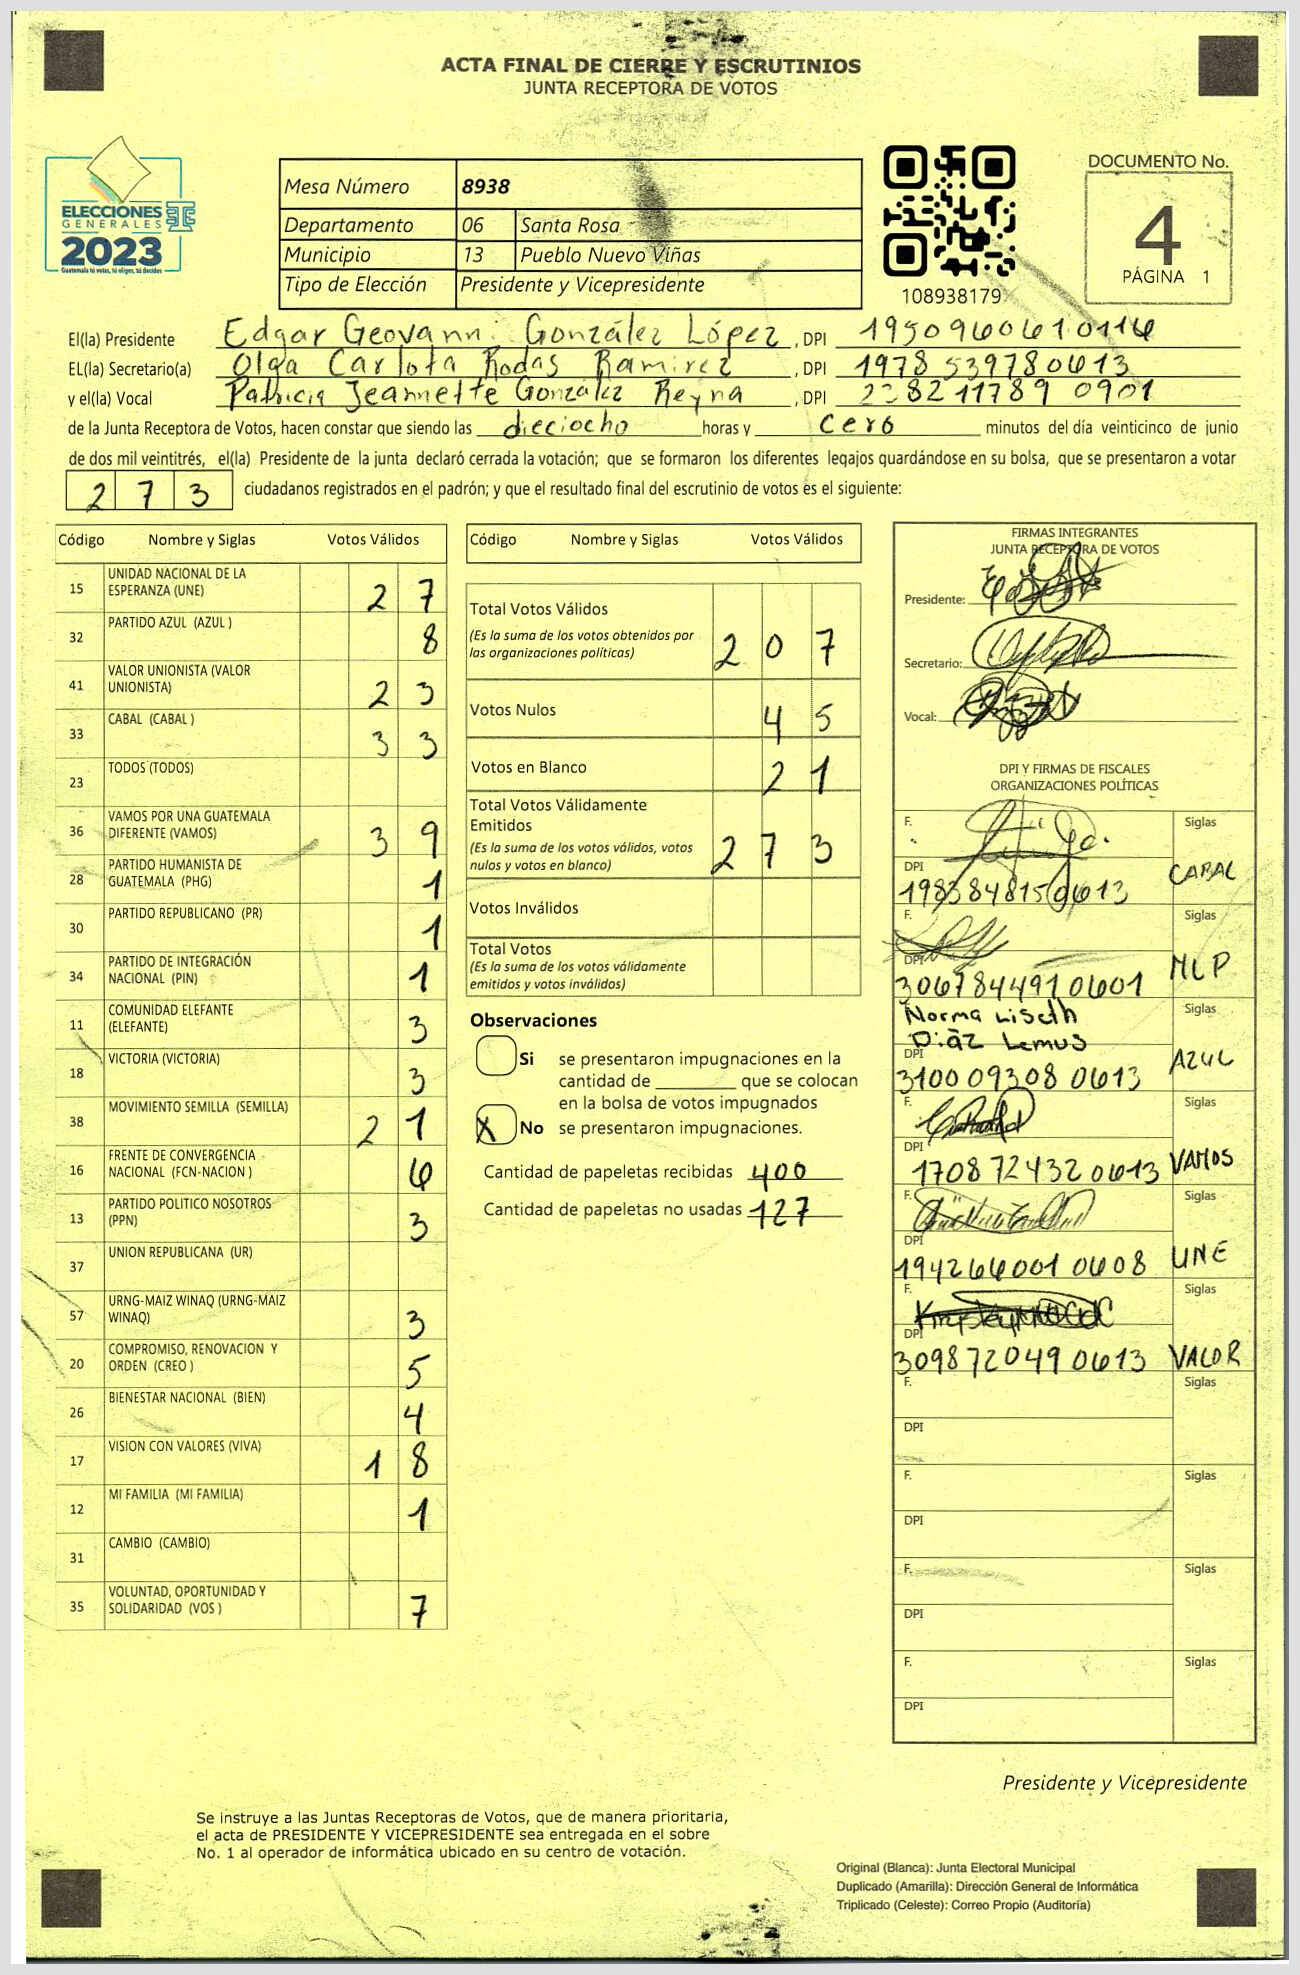 ACTA FINAL DE CIERRE Y ESCRUTINIOS
JUNTA RECEPTORA DE VOTOS
ELECCIONES
GENERALES
2023
Guatemala tú votas, tú eliges, tú decides
Mesa Número 8938
Departamento 06 Santa Rosa
Municipio 13 Pueblo Nuevo Viñas
Tipo de Elección Presidente y Vicepresidente
108938179
DOCUMENTO No.
4
PÁGINA 1
El(la) Presidente Edgar Geovanni González López, DPI 1950960610114
EL(la) Secretario(a) Olga Carlota Rodas Ramirez, DPI 1978 539780613
y el(la) Vocal Patricia Jeannette González Reyna, DPI 2382117890901
de la Junta Receptora de Votos, hacen constar que siendo las dieciocho horas y cero minutos del día veinticinco de junio
de dos mil veintitrés, el(la) Presidente de la junta declaró cerrada la votación; que se formaron los diferentes legajos guardándose en su bolsa, que se presentaron a votar
273 ciudadanos registrados en el padrón; y que el resultado final del escrutinio de votos es el siguiente:
Código Nombre y Siglas Votos Válidos
15 UNIDAD NACIONAL DE LA ESPERANZA (UNE) 27
32 PARTIDO AZUL (AZUL ) 8
41 VALOR UNIONISTA (VALOR UNIONISTA) 23
33 CABAL (CABAL ) 33
23 TODOS (TODOS)
36 VAMOS POR UNA GUATEMALA DIFERENTE (VAMOS) 39
28 PARTIDO HUMANISTA DE GUATEMALA (PHG) 1
30 PARTIDO REPUBLICANO (PR) 1
34 PARTIDO DE INTEGRACIÓN NACIONAL (PIN) 1
11 COMUNIDAD ELEFANTE (ELEFANTE) 3
18 VICTORIA (VICTORIA) 3
38 MOVIMIENTO SEMILLA (SEMILLA) 21
16 FRENTE DE CONVERGENCIA NACIONAL (FCN-NACION ) 6
13 PARTIDO POLITICO NOSOTROS (PPN) 3
37 UNION REPUBLICANA (UR)
57 URNG-MAIZ WINAQ (URNG-MAIZ WINAQ) 3
20 COMPROMISO, RENOVACION Y ORDEN (CREO ) 5
26 BIENESTAR NACIONAL (BIEN) 4
17 VISION CON VALORES (VIVA) 18
12 MI FAMILIA (MI FAMILIA) 1
31 CAMBIO (CAMBIO)
35 VOLUNTAD, OPORTUNIDAD Y SOLIDARIDAD (VOS ) 7
Código Nombre y Siglas Votos Válidos
Total Votos Válidos 207
(Es la suma de los votos obtenidos por
las organizaciones políticas)
Votos Nulos 45
Votos en Blanco 21
Total Votos Válidamente
Emitidos 273
(Es la suma de los votos válidos, votos
nulos y votos en blanco)
Votos Inválidos
Total Votos
(Es la suma de los votos válidamente
emitidos y votos inválidos)
Observaciones
Si se presentaron impugnaciones en la
cantidad de ________ que se colocan
en la bolsa de votos impugnados
X No se presentaron impugnaciones.
Cantidad de papeletas recibidas 400
Cantidad de papeletas no usadas 127
FIRMAS INTEGRANTES
JUNTA RECEPTORA DE VOTOS
Presidente:
Secretario:
Vocal:
DPI Y FIRMAS DE FISCALES
ORGANIZACIONES POLÍTICAS
F. Siglas
DPI 1983848150613 CABAL
F. Siglas
DPI 3067844910601 MLP
Norma Liseth Siglas
Díaz Lemus
DPI 3100093080613 AZUL
F. Siglas
DPI 1708724320613 VAMOS
F. Siglas
DPI 1942660010608 UNE
F. Siglas
DPI 3098720490613 VALOR
F. Siglas
DPI
F. Siglas
DPI
F. Siglas
DPI
F. Siglas
DPI
Presidente y Vicepresidente
Se instruye a las Juntas Receptoras de Votos, que de manera prioritaria,
el acta de PRESIDENTE Y VICEPRESIDENTE sea entregada en el sobre
No. 1 al operador de informática ubicado en su centro de votación.
Original (Blanca): Junta Electoral Municipal
Duplicado (Amarilla): Dirección General de Informática
Triplicado (Celeste): Correo Propio (Auditoría)